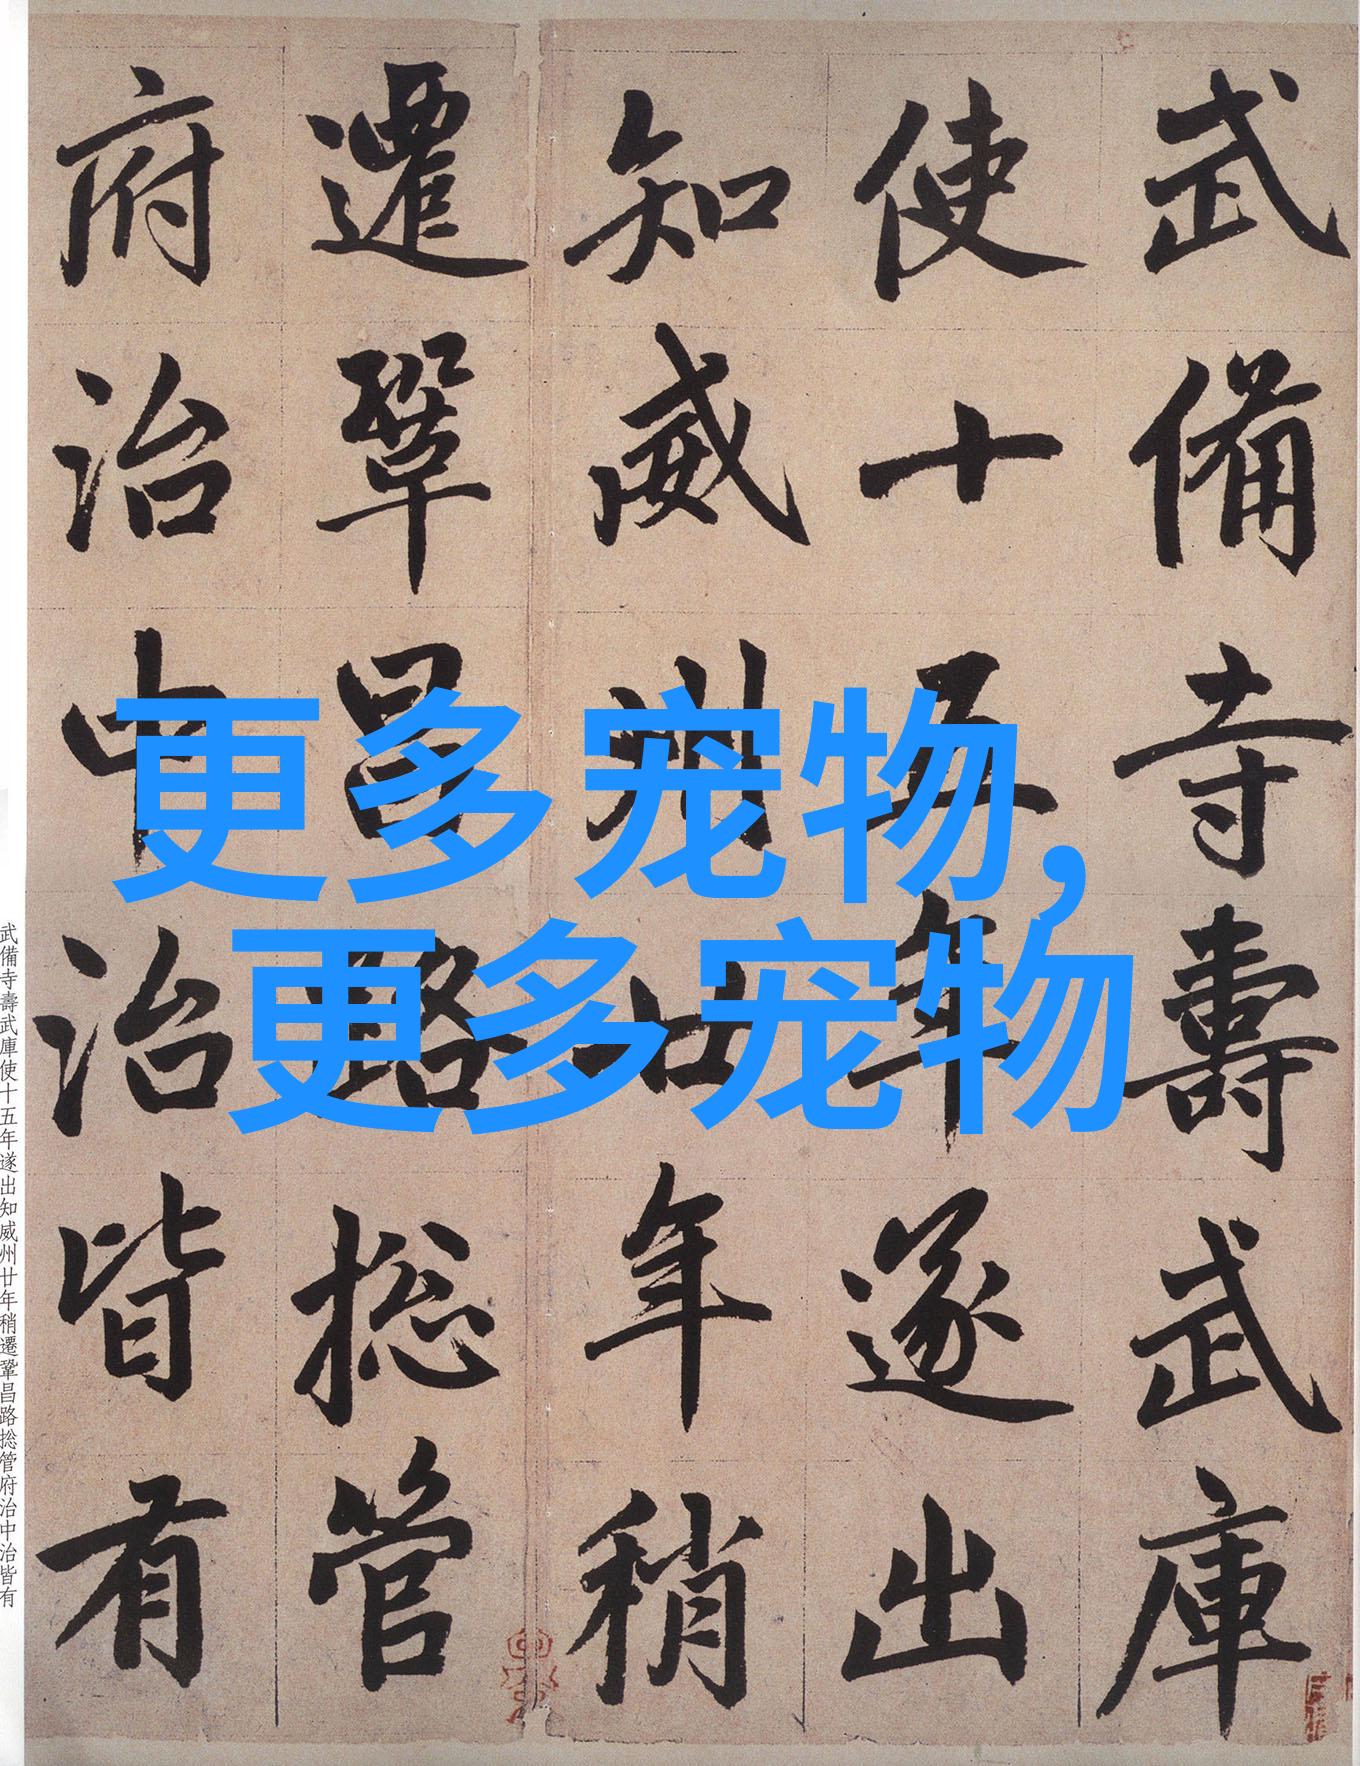 武備寺壽武庫
使十五年遂出
知威州廿年稍
遷鞏昌路捴管
府治中治皆有
更多宠物,
更多宠物
武備寺壽武庫使十五年遂出知威州廿年稍遷鞏昌路捴管府治中治皆有